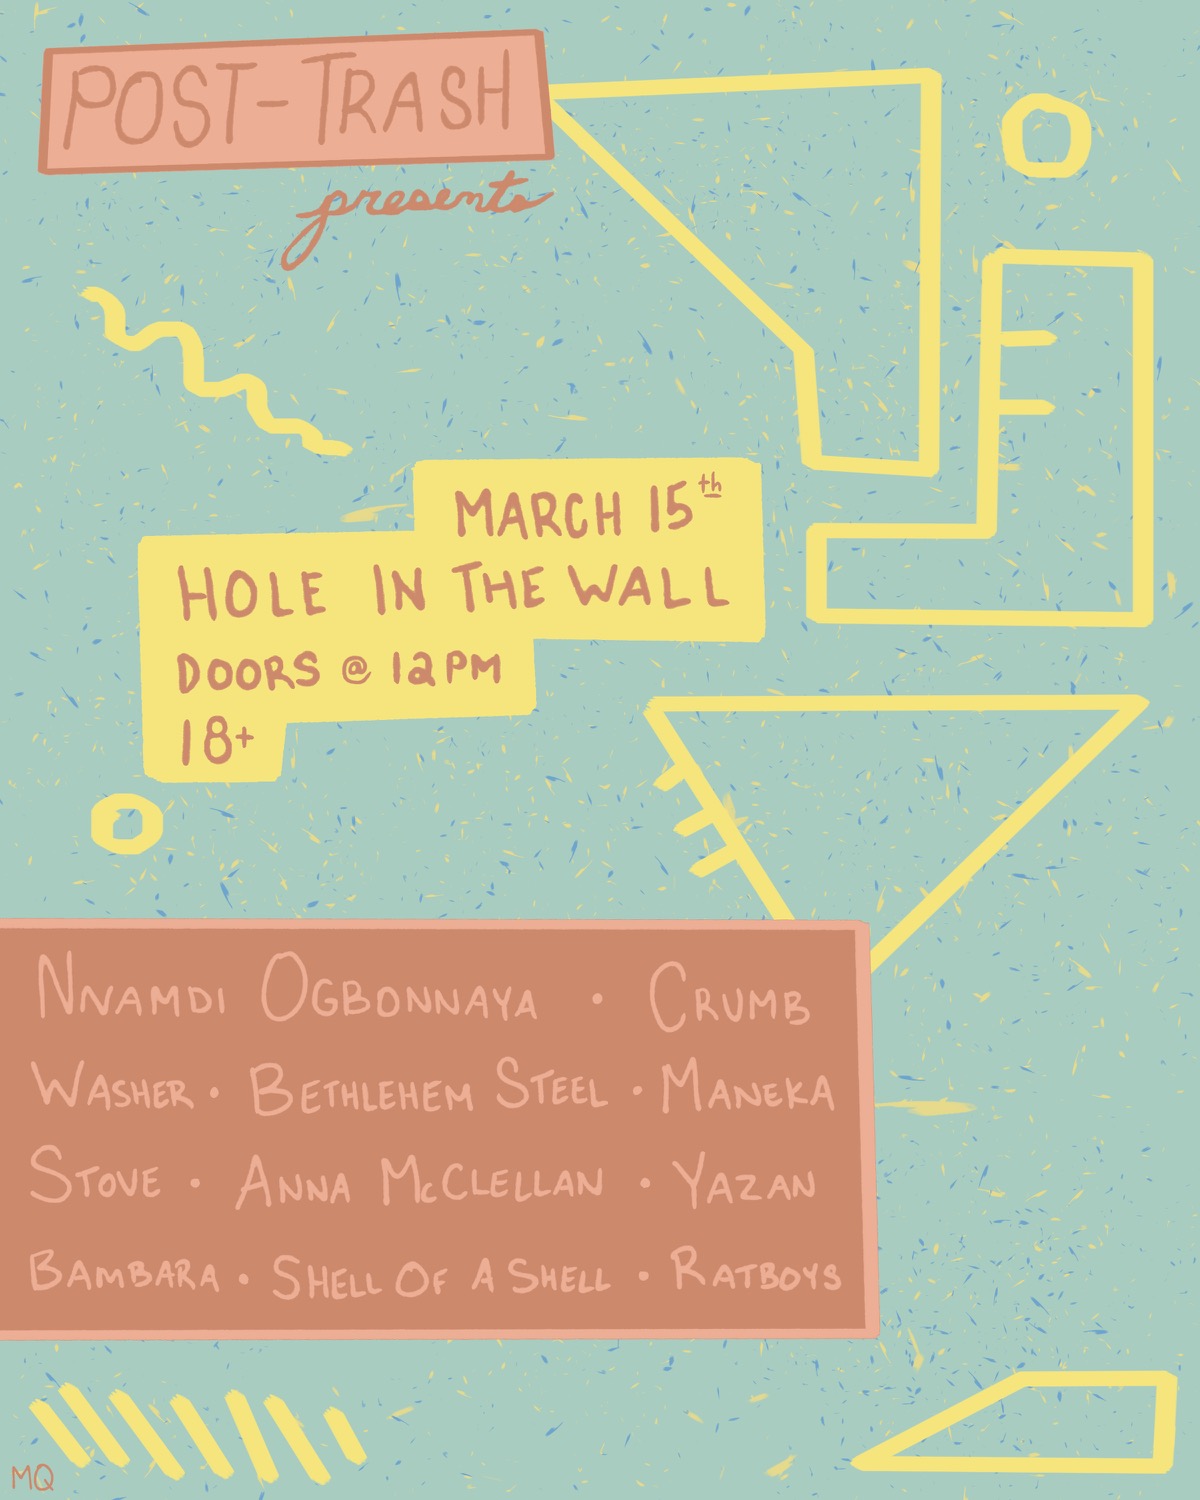 POST-TRASH
presents
MARCH 15th
HOLE IN THE WALL
DOORS @ 12PM
18+
NNAMDI OGBONNAYA • CRUMB
WASHER • BETHLEHEM STEEL • MANEKA
STOVE • ANNA McCLELLAN • YAZAN
BAMBARA • SHELL OF A SHELL • RATBOYS
MQ